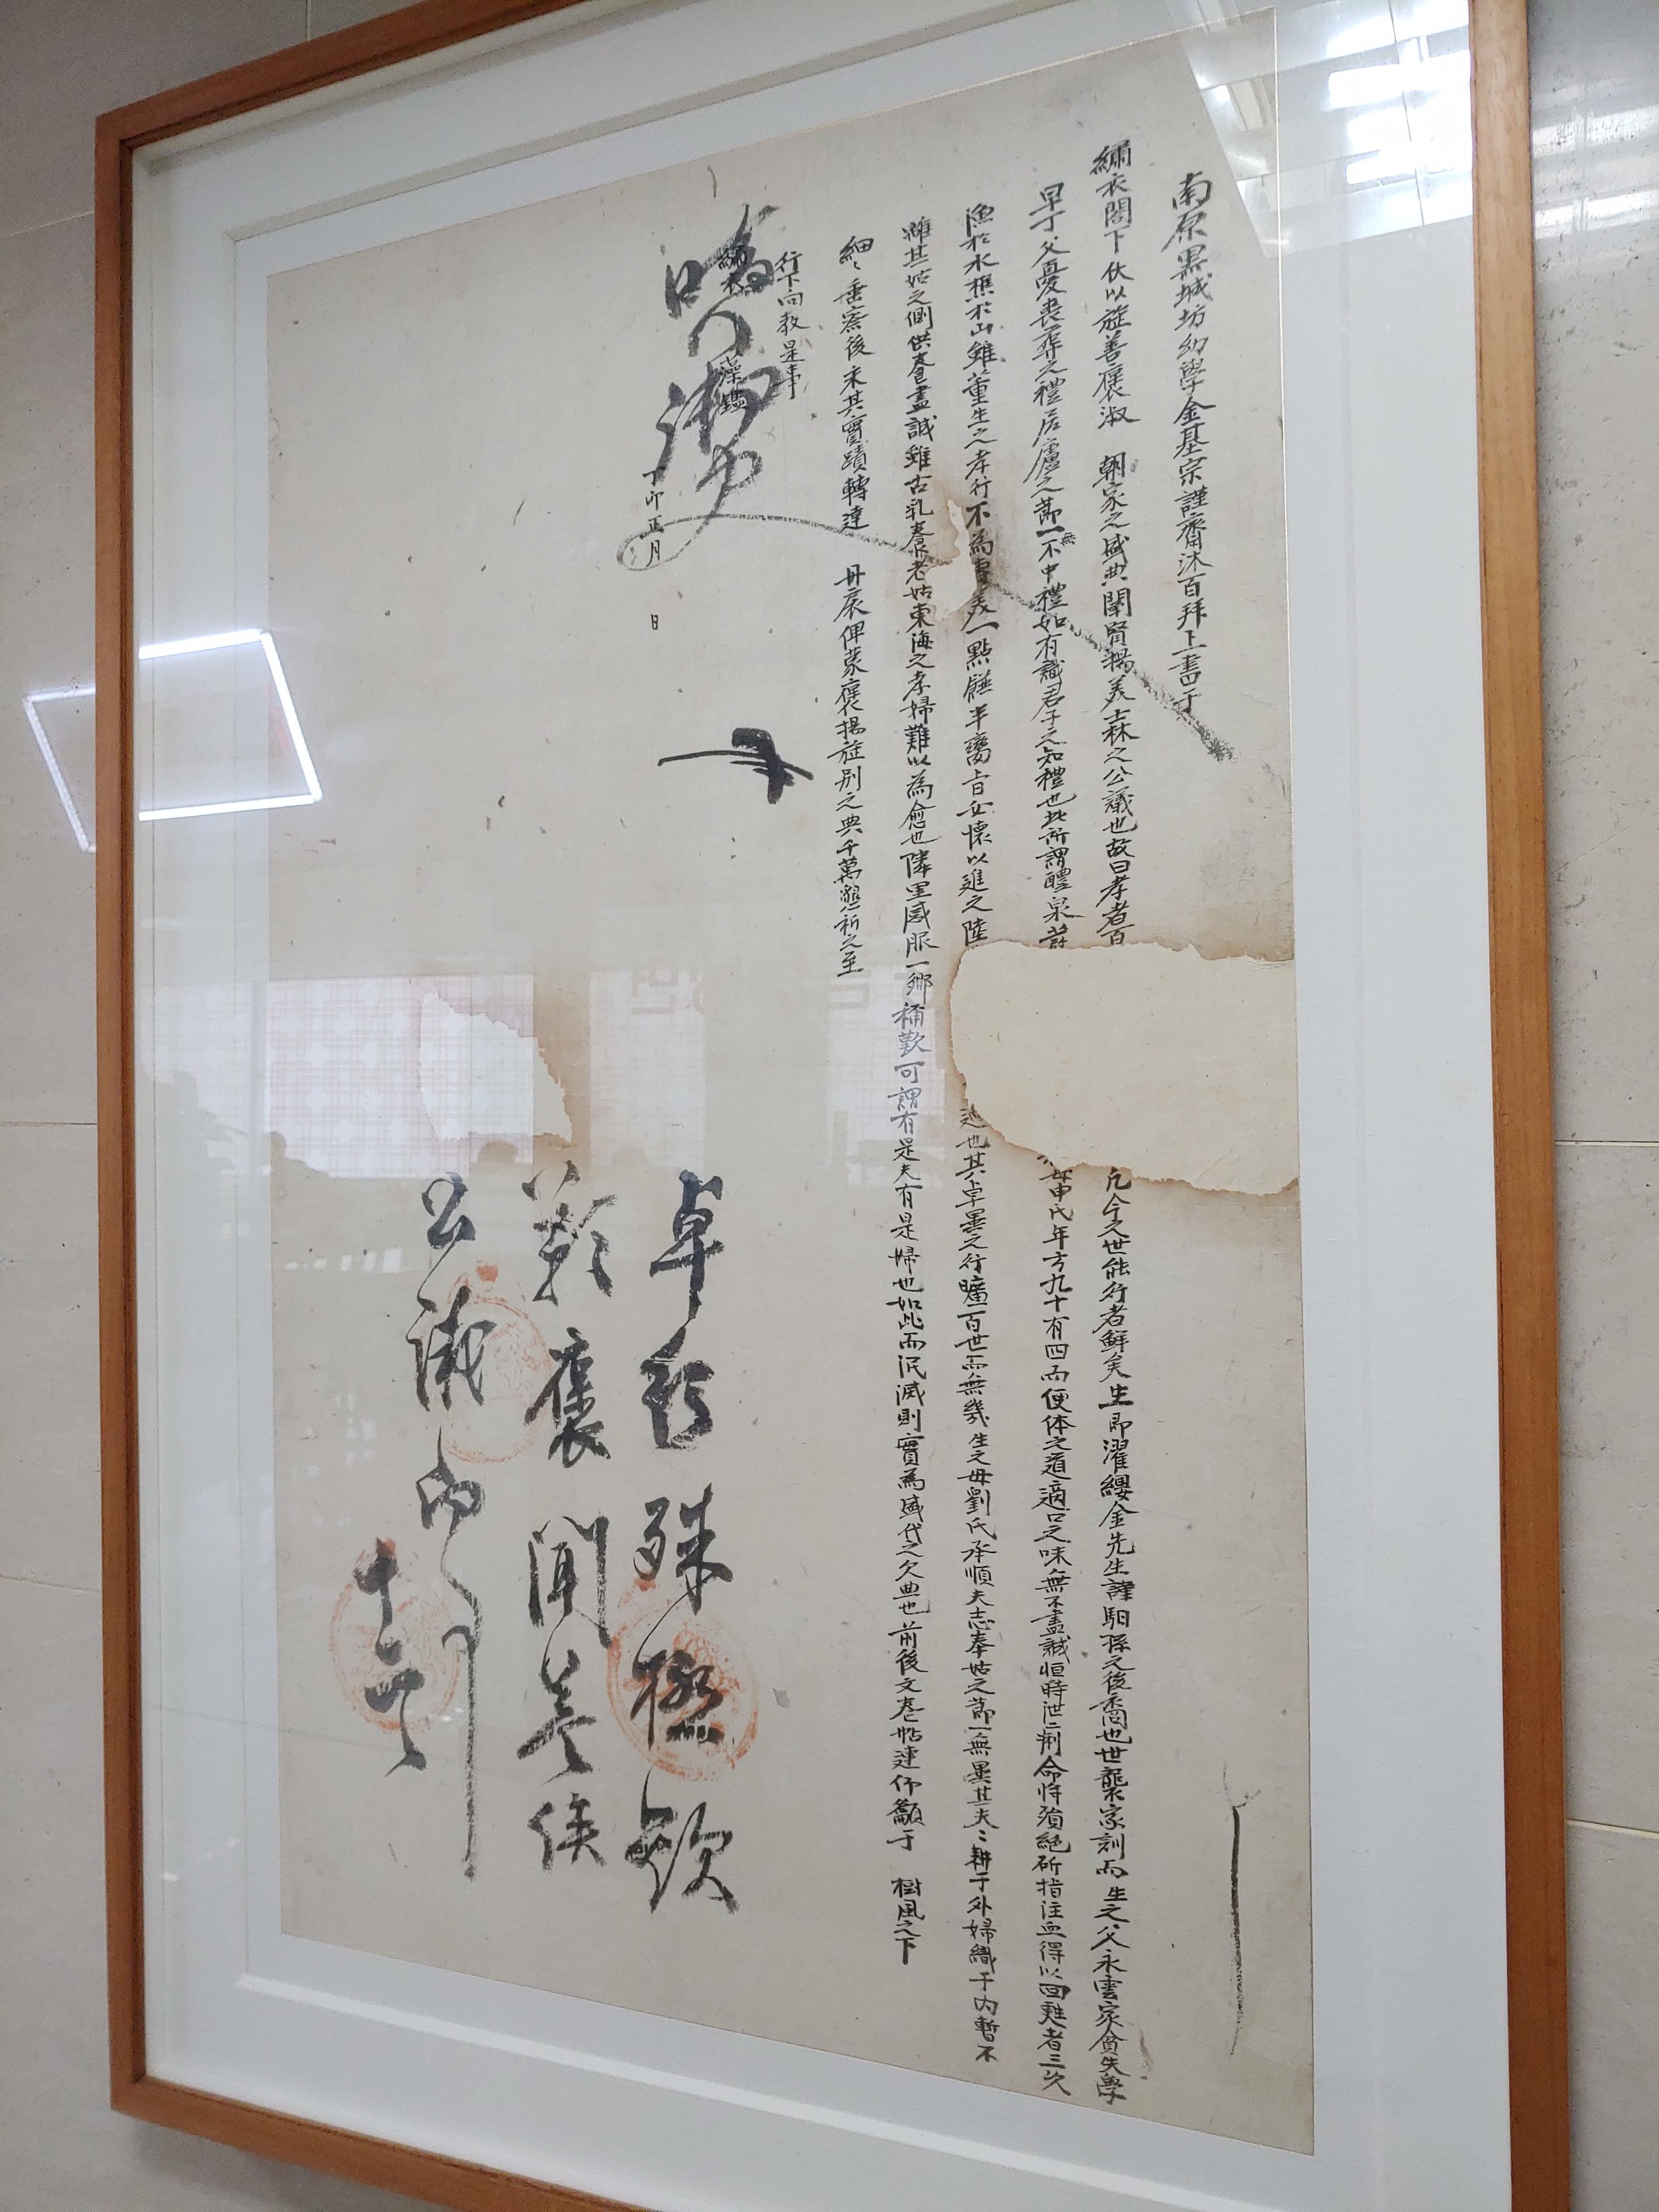 南原黑城坊幼學金基宗謹齋沐百拜上書于
繡衣閤下伏以旌善褒淑 朝家之盛典闡賢揚美士林之公議也故曰孝者百
凡今之世能行者鮮矣生卽濯纓金先生諱馹孫之後裔也世襲家訓而生之父永雲家貧失學
早丁父憂喪葬之禮居廬之節一無不中禮如有識君子之知禮也此所謂醴泉
母申氏年方九十有四而便体之道適口之味無不盡誠恒時泄痢命將殞絶斫指注血得以回甦者三次
漁於水樵於山雖董生之孝行不爲專美一點餠半臠旨必懷以進之陸
也其卓異之行曠百世而無幾生之母劉氏承順夫志奉姑之節一無異其夫〻耕于外婦織于內暫不
離其姑之側供養盡誠雖古乳養老姑東海之孝婦難以爲愈也隣里感服一鄉稱歎可謂有是夫有是婦也如此而泯滅則實爲盛代之欠典也前後文卷帖連仰籲于 樹風之下
細〻垂察後采其實蹟轉達 丹扆俾蒙褒揚旌別之典千萬懇祈之至
行下向敎是事
繡衣 藻鑑
丁卯正月 日
卓 殊極歎
褒聞羔俟
公議向
十